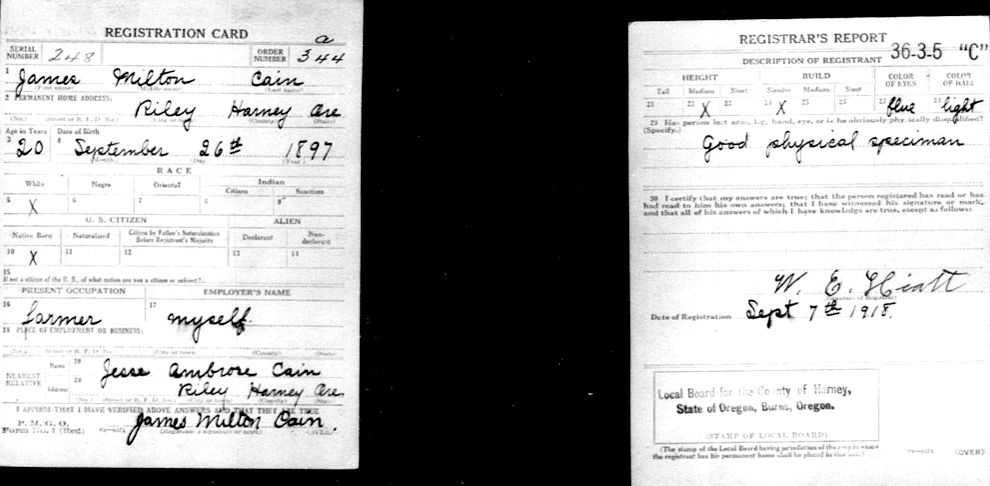 REGISTRATION CARD
SERIAL NUMBER 248 ORDER NUMBER a 344
1 James Milton Cain
(First name) (Middle name) (Last name)
2 PERMANENT HOME ADDRESS:
Riley Harney Ore
(No.) (Street or R. F. D. No.) (City or town) (County) (State)
Age in Years Date of Birth
3 20 4 September 26th 1897
(Month.) (Day.) (Year.)
RACE
White Negro Oriental Indian
Citizen Noncitizen
5 X 6 7 8 9
U. S. CITIZEN ALIEN
Native Born Naturalized Citizen by Father's Naturalization Before Registrant's Majority Declarant Non-declarant
10 X 11 12 13 14
15
If not a citizen of the U. S., of what nation are you a citizen or subject?
PRESENT OCCUPATION EMPLOYER'S NAME
16 farmer 17 myself
18 PLACE OF EMPLOYMENT OR BUSINESS:
(No.) (Street or R. F. D. No.) (City or town) (County) (State)
NEAREST RELATIVE Name 19 Jesse Ambrose Cain
Address 20 Riley Harney Ore.
(No.) (Street or R. F. D. No.) (City or town) (County) (State)
I AFFIRM THAT I HAVE VERIFIED ABOVE ANSWERS AND THAT THEY ARE TRUE
P. M. G. O.
Form No. 1 (Red) James Milton Cain.
(Registrant's signature or mark) (OVER)
REGISTRAR'S REPORT
36-3-5 "C"
DESCRIPTION OF REGISTRANT
HEIGHT BUILD COLOR OF EYES COLOR OF HAIR
Tall Medium Short Slender Medium Stout
21 22 X 23 24 X 25 26 27 blue 28 light
29 Has person lost arm, leg, hand, eye, or is he obviously physically disqualified?
(Specify.)
Good physical speciman
30 I certify that my answers are true; that the person registered has read or has
had read to him his own answers; that I have witnessed his signature or mark,
and that all of his answers of which I have knowledge are true, except as follows:
W. E. Hiatt
(Signature of Registrar)
Date of Registration Sept 7th 1918.
Local Board for the County of Harney,
State of Oregon, Burns, Oregon.
(STAMP OF LOCAL BOARD)
(The stamp of the Local Board having jurisdiction of the area in which
the registrant has his permanent home shall be placed in this box.)
(OVER)